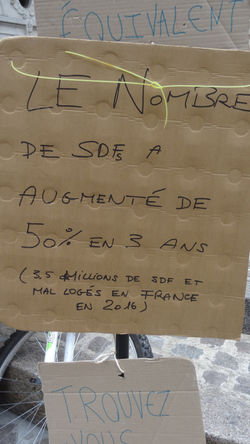 ÉQUIVALENT
LE NOMBRE
DE SDFs A
AUGMENTÉ DE
50% EN 3 ANS
(3,5 MILLIONS DE SDF ET
MAL LOGÉS EN FRANCE
EN 2016)
TROUVEZ
VOUS